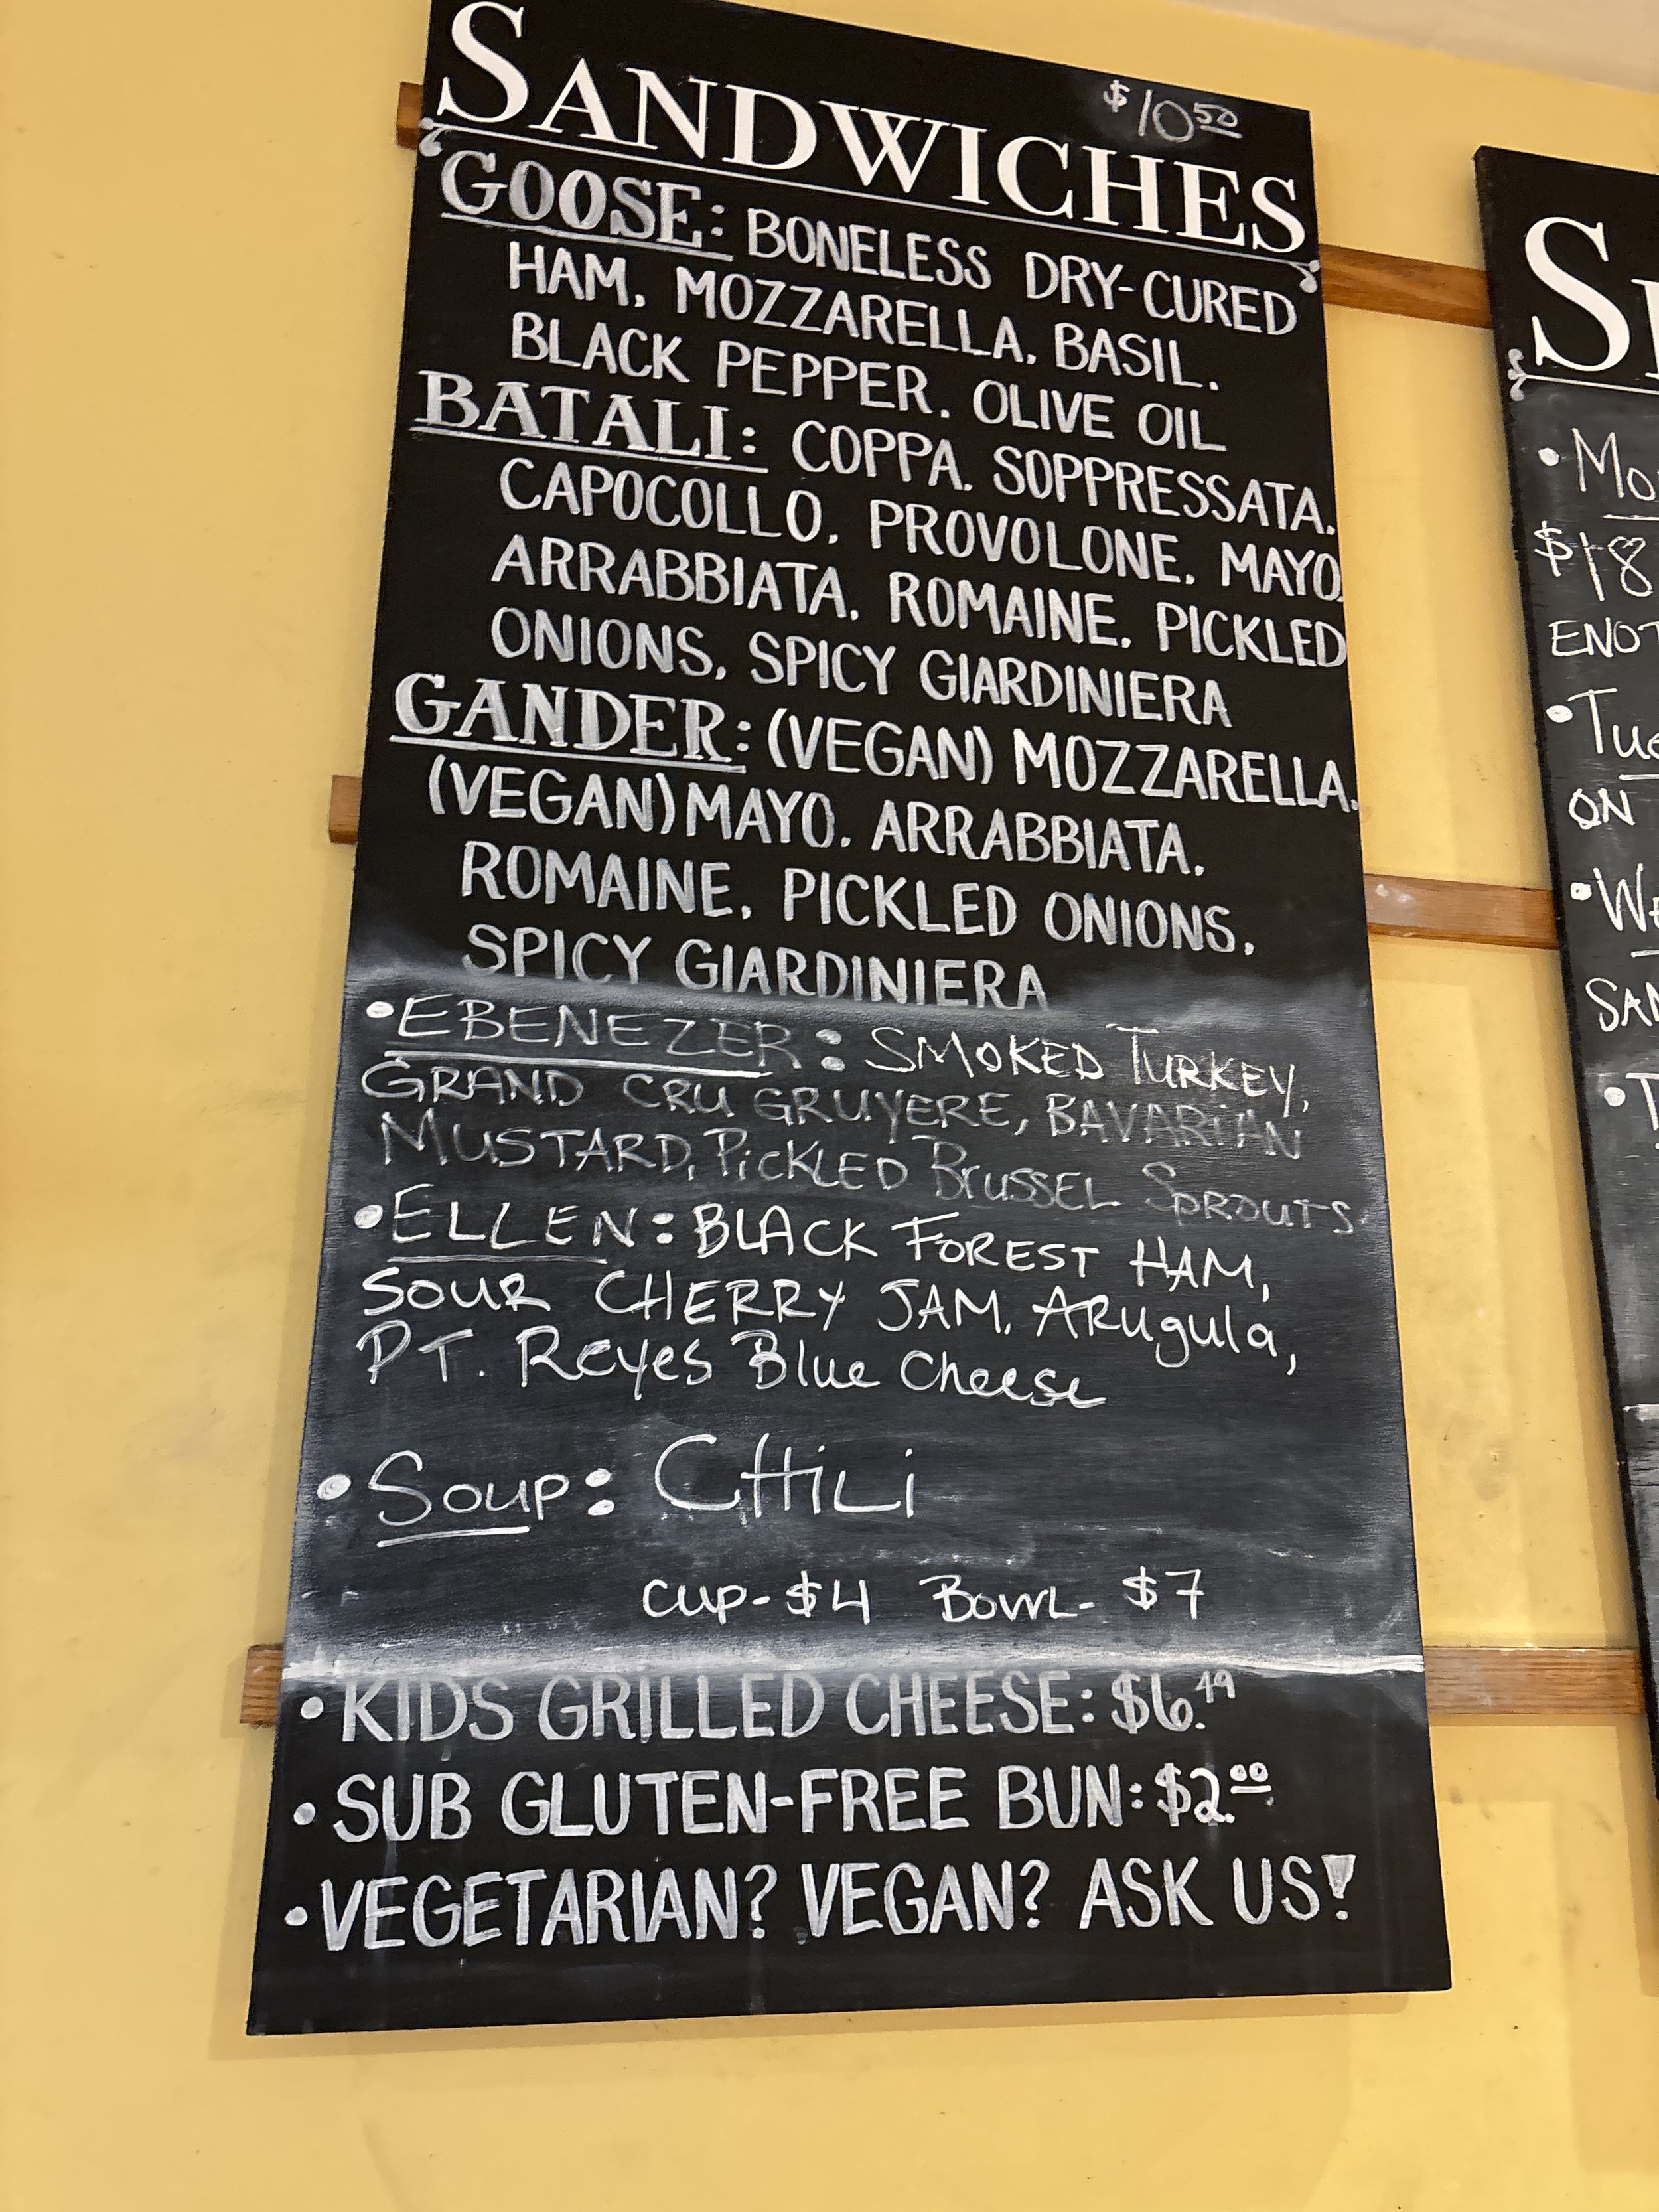 SANDWICHES $10.50
GOOSE: BONELESS DRY-CURED
HAM, MOZZARELLA, BASIL,
BLACK PEPPER, OLIVE OIL
BATALI: COPPA, SOPPRESSATA,
CAPOCOLLO, PROVOLONE, MAYO,
ARRABBIATA, ROMAINE, PICKLED
ONIONS, SPICY GIARDINIERA
GANDER: (VEGAN) MOZZARELLA,
(VEGAN) MAYO, ARRABBIATA,
ROMAINE, PICKLED ONIONS,
SPICY GIARDINIERA
•EBENEZER: SMOKED TURKEY,
GRAND CRU GRUYERE, BAVARIAN
MUSTARD, PICKLED BRUSSEL SPROUTS
•ELLEN: BLACK FOREST HAM,
SOUR CHERRY JAM, ARugula,
PT. Reyes Blue Cheese
•Soup: CHiLi
CUP-$4 BOWL-$7
•KIDS GRILLED CHEESE: $6.49
•SUB GLUTEN-FREE BUN: $2.00
•VEGETARIAN? VEGAN? ASK US!
•Mo
$18
ENOT
•Tue
ON
•We
SAN